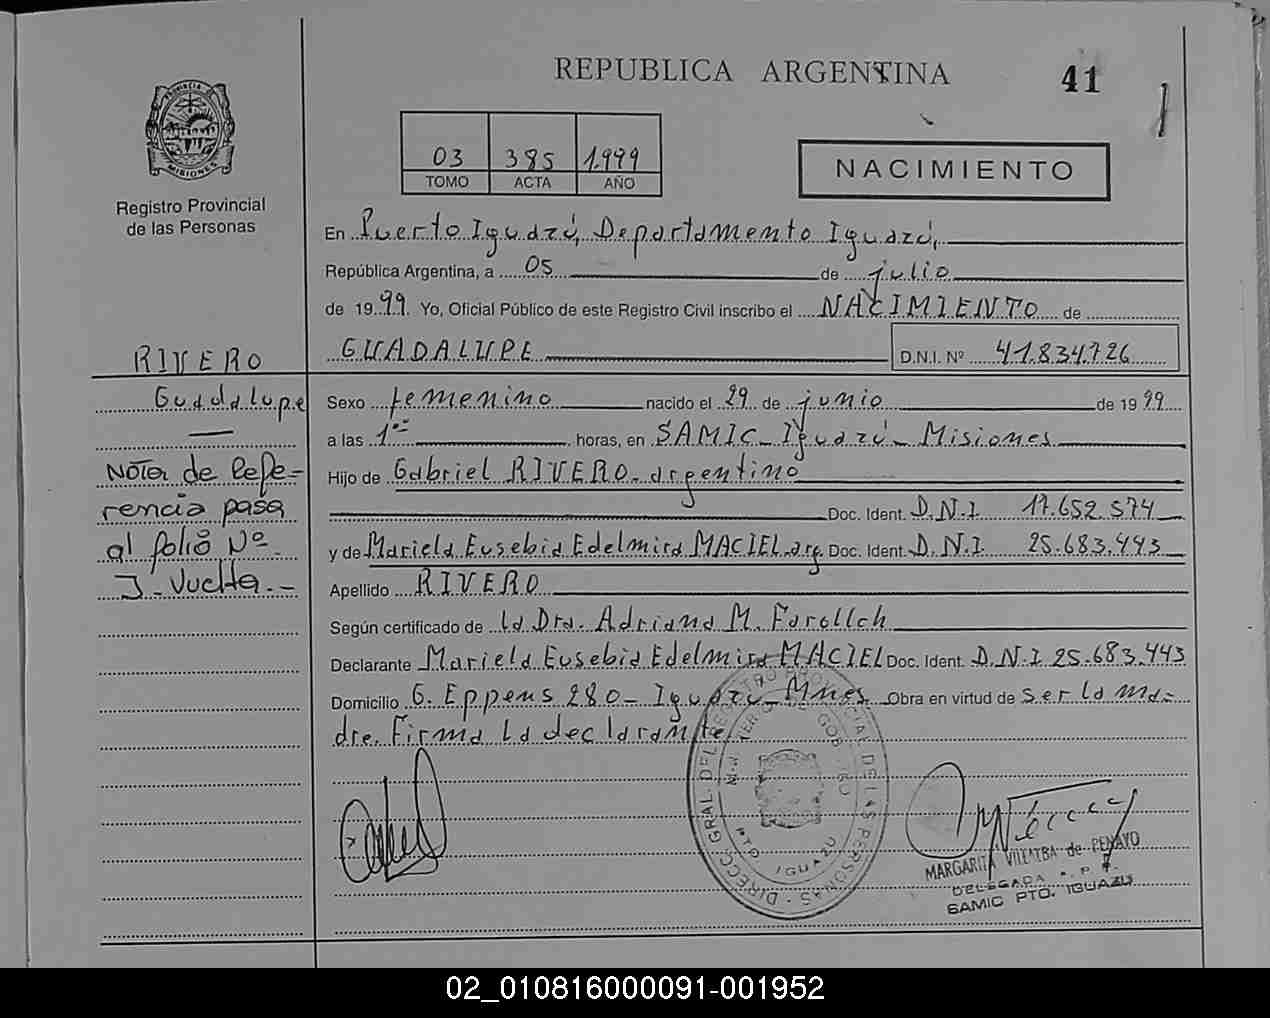 REPUBLICA ARGENTINA
41
PROVINCIA DE
MISIONES
Registro Provincial
de las Personas
03 385 1.999
TOMO ACTA AÑO
NACIMIENTO
En Puerto Iguazú, Departamento Iguazú,
República Argentina, a 05 de julio
de 1999. Yo, Oficial Público de este Registro Civil inscribo el NACIMIENTO de
GUADALUPE D.N.I. Nº 41.834.726
RIVERO
Guadalupe
Nota de Refe=
rencia pasa
al folio Nº
I. Vuelta.-
Sexo femenino nacido el 29 de junio de 1999
a las 1 horas, en SAMIC- Iguazú- Misiones
Hijo de Gabriel RIVERO- argentino
Doc. Ident. D.N.I 17.652.574
y de Mariela Eusebia Edelmira MACIEL.arg. Doc. Ident. D.N.I. 25.683.443
Apellido RIVERO
Según certificado de la Dra. Adriana M.
Declarante Mariela Eusebia Edelmira MACIEL Doc. Ident. D.N.I 25.683.443
Domicilio G. Eppens 280- Iguazú-Mnes. Obra en virtud de ser la ma=
dre. Firma la declarante.
DIRECC. GRAL. DEL REGISTRO PROVINCIAL DE LAS PERSONAS
MINISTERIO DE GOBIERNO
PTO. IGUAZU
MARGARITA VILLALBA de PENAYO
DELEGADA
SAMIC PTO. IGUAZU
02_010816000091-001952